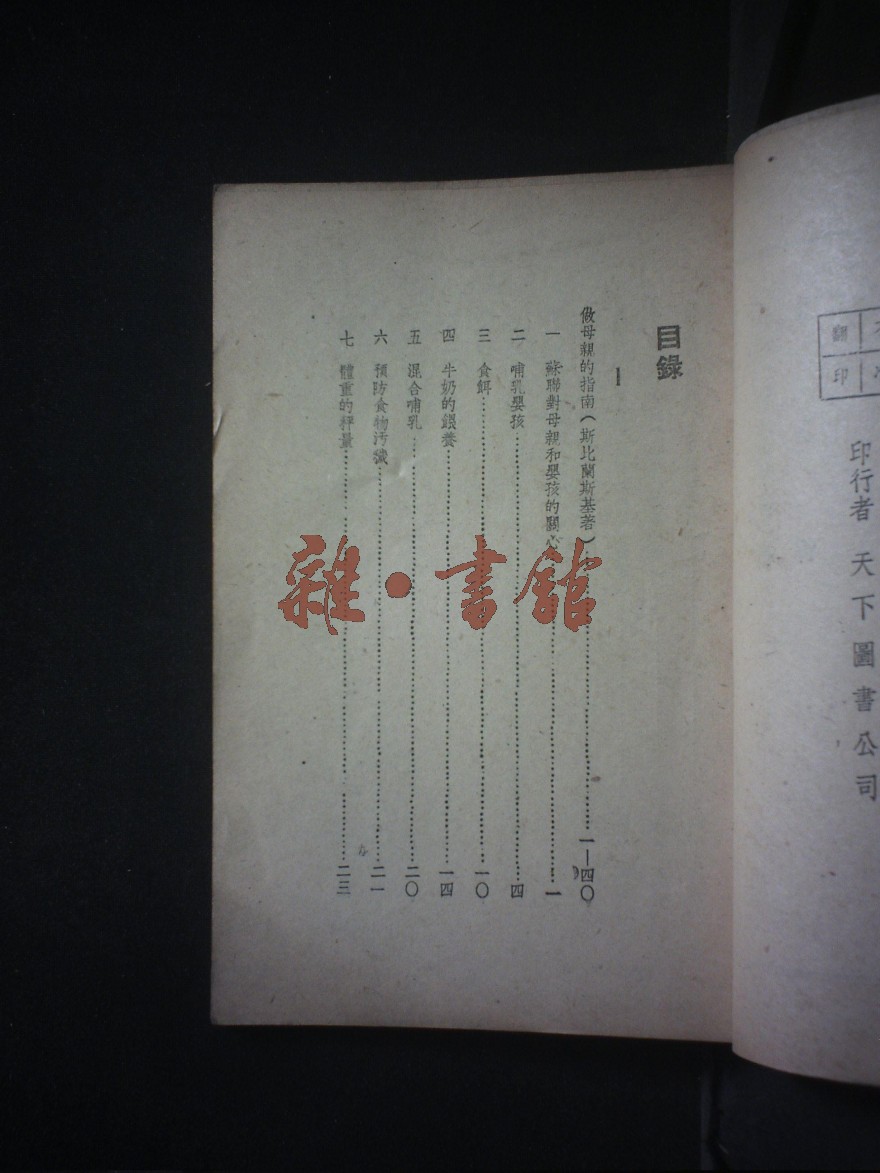 目錄
做母親的指南(斯比蘭斯基著)……一—四〇
一 蘇聯對母親和嬰孩的關心……一
二 哺乳嬰孩……四
三 食餌……一〇
四 牛奶的餵養……一四
五 混合哺乳……二〇
六 預防食物汚穢……二一
七 體重的秤量……二三
雜·書館
翻印
印行者 天下圖書公司